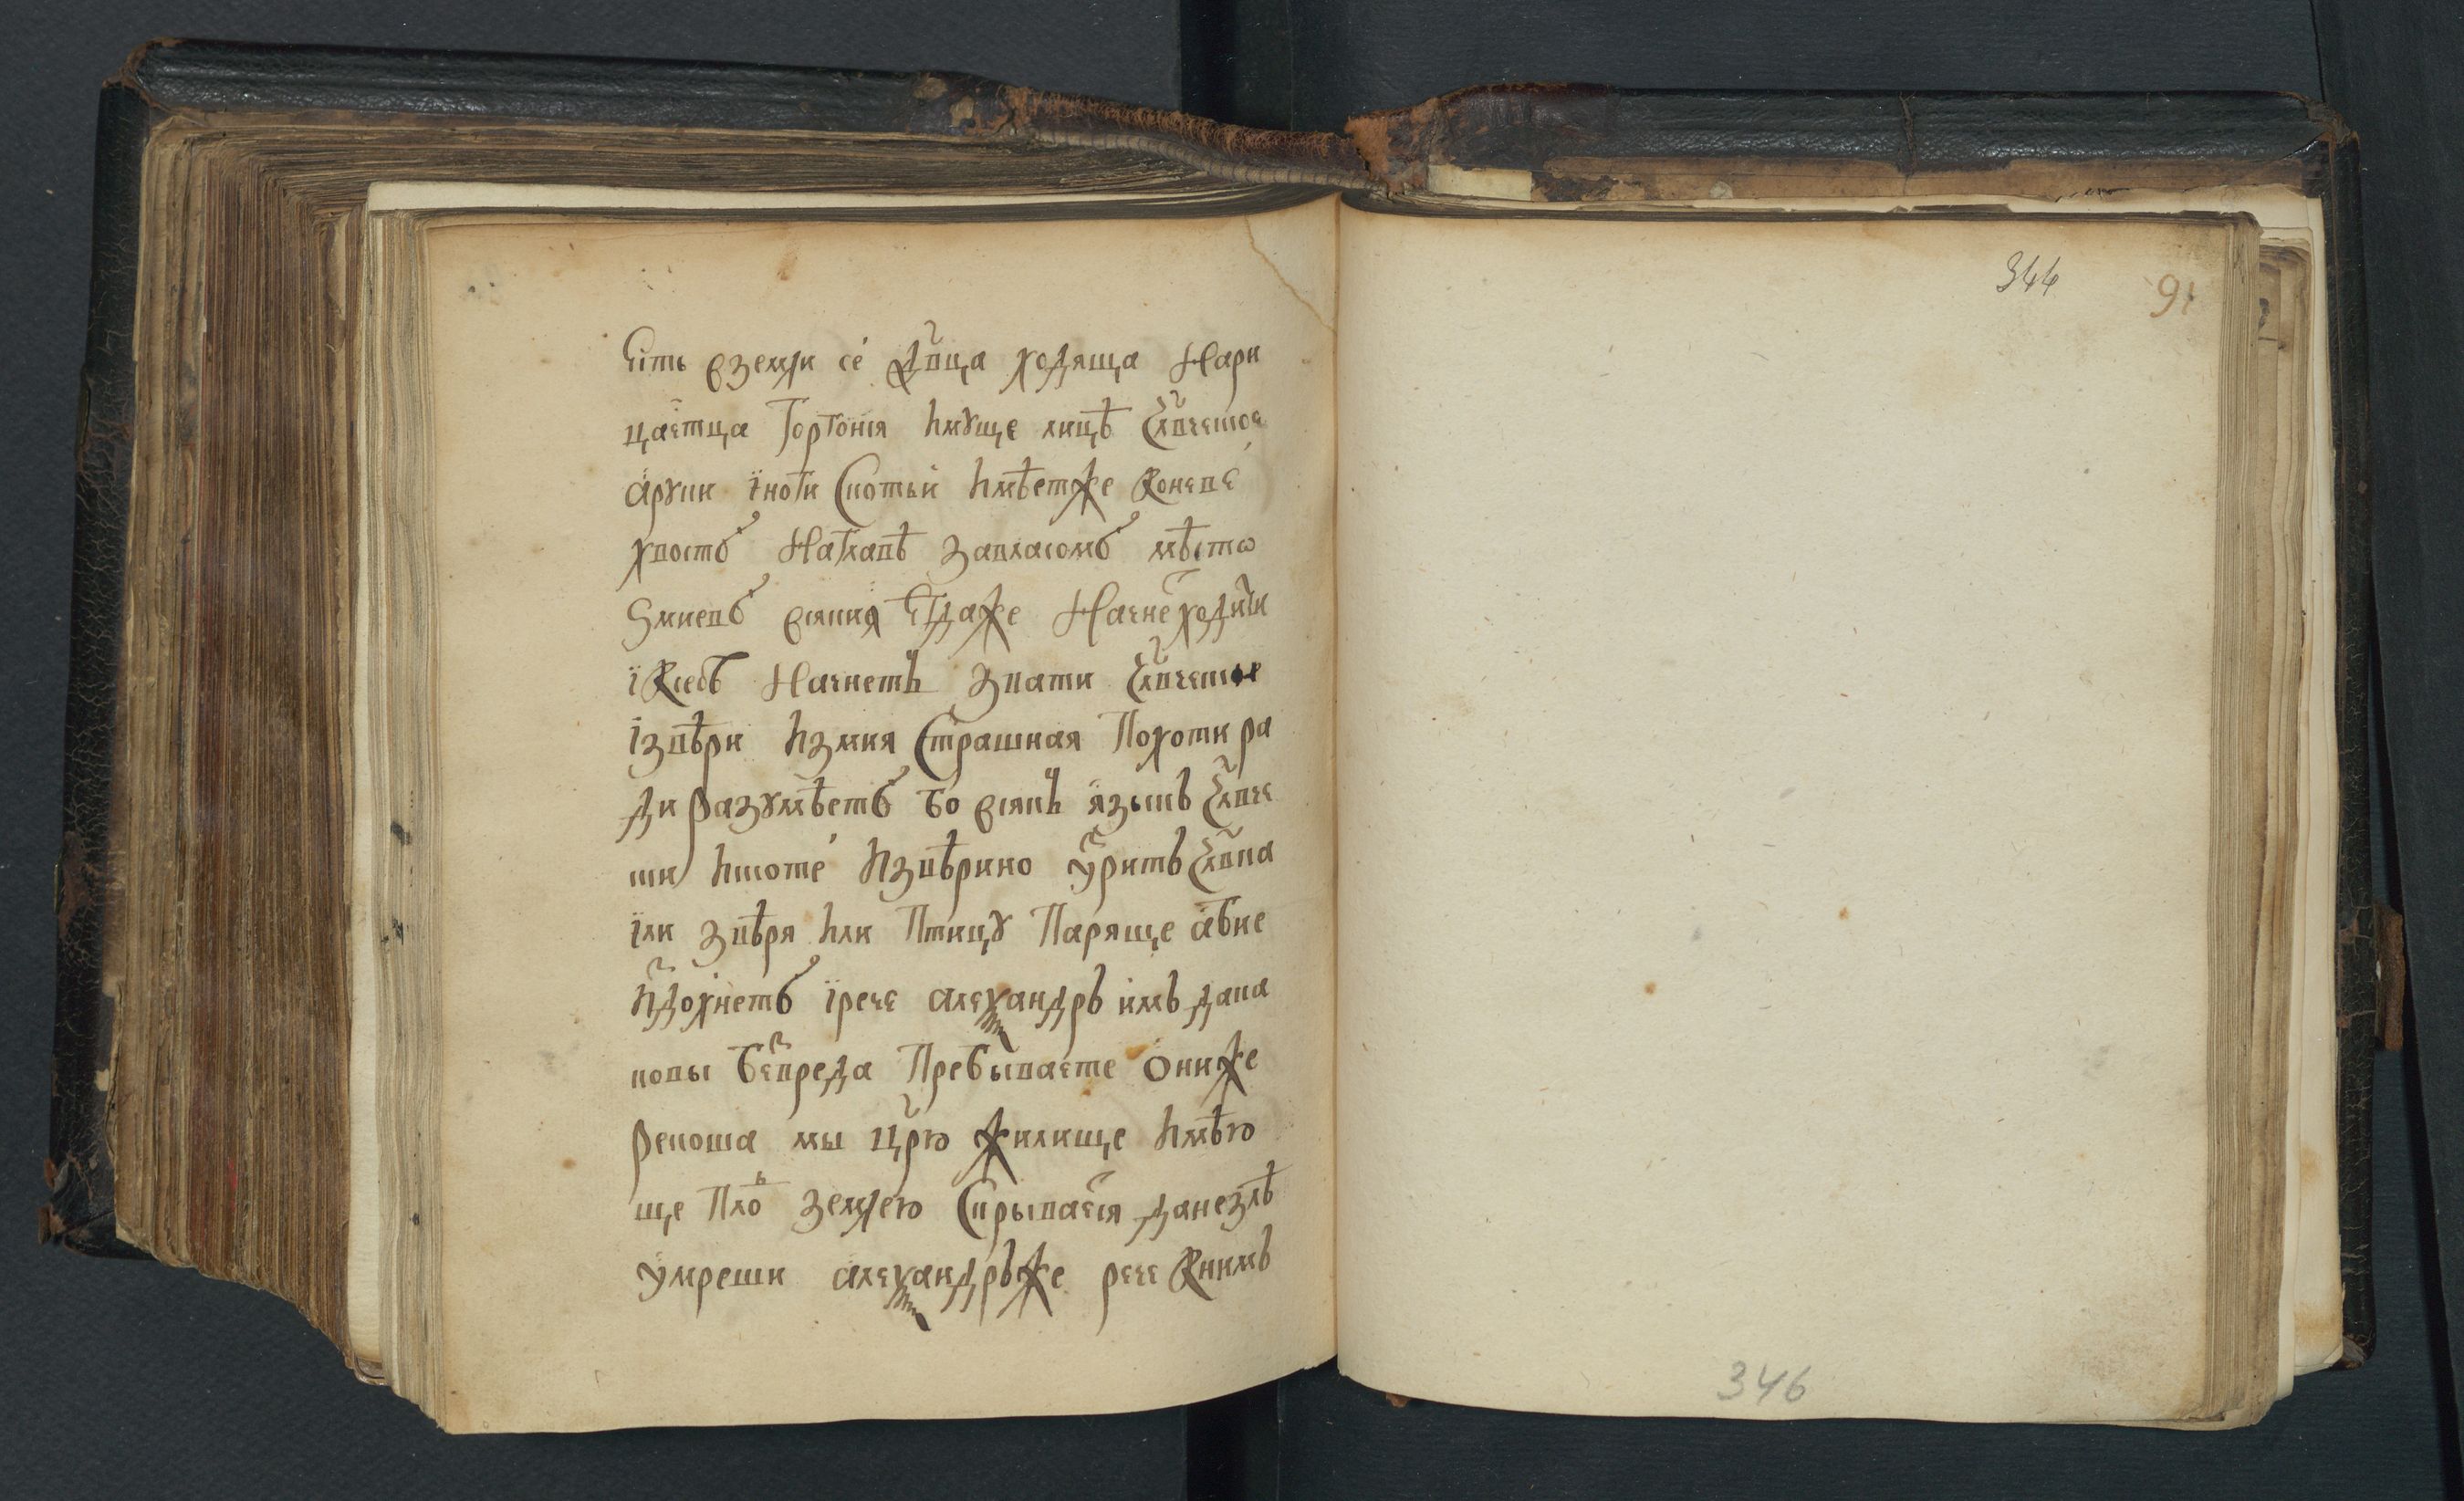 344
91
Есть вземли се́ дв҃ца ходяща Нари
цаетца Горгонія Имꙋще лицѣ Члв҃чешое
арꙋки їноги Скотьи Имѣетже Коневе
хвостъ Наглавѣ Завласомъ мѣсто
Ѕмиевъ всяких Егдаже Начне ходити
їксебѣ Начнетъ Звати Члв҃чешое
їзвѣри Измия Страшная Похоти ра
ди разꙋмѣетъ бо всякъ языкъ Члв҃че
ши Ишоте Извѣрино Ꙋритъ Члв҃ка
їли звѣря Или Птицꙋ Паряще абие
Издохнетъ їрече алеѯандръ имъ дака
ковы безвреда Пребываете ониже
рекоша мы цр҃ю жилище Имѣю
ще По землею Скрываеся данезлѣ
ꙋмреши алеѯандръже рече Книмъ
346